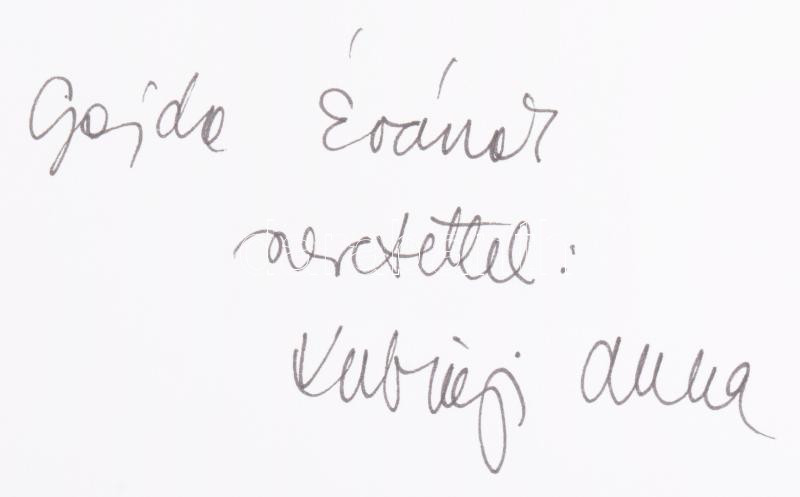 Gajda Évának
szeretettel:
Kubinyi Anna